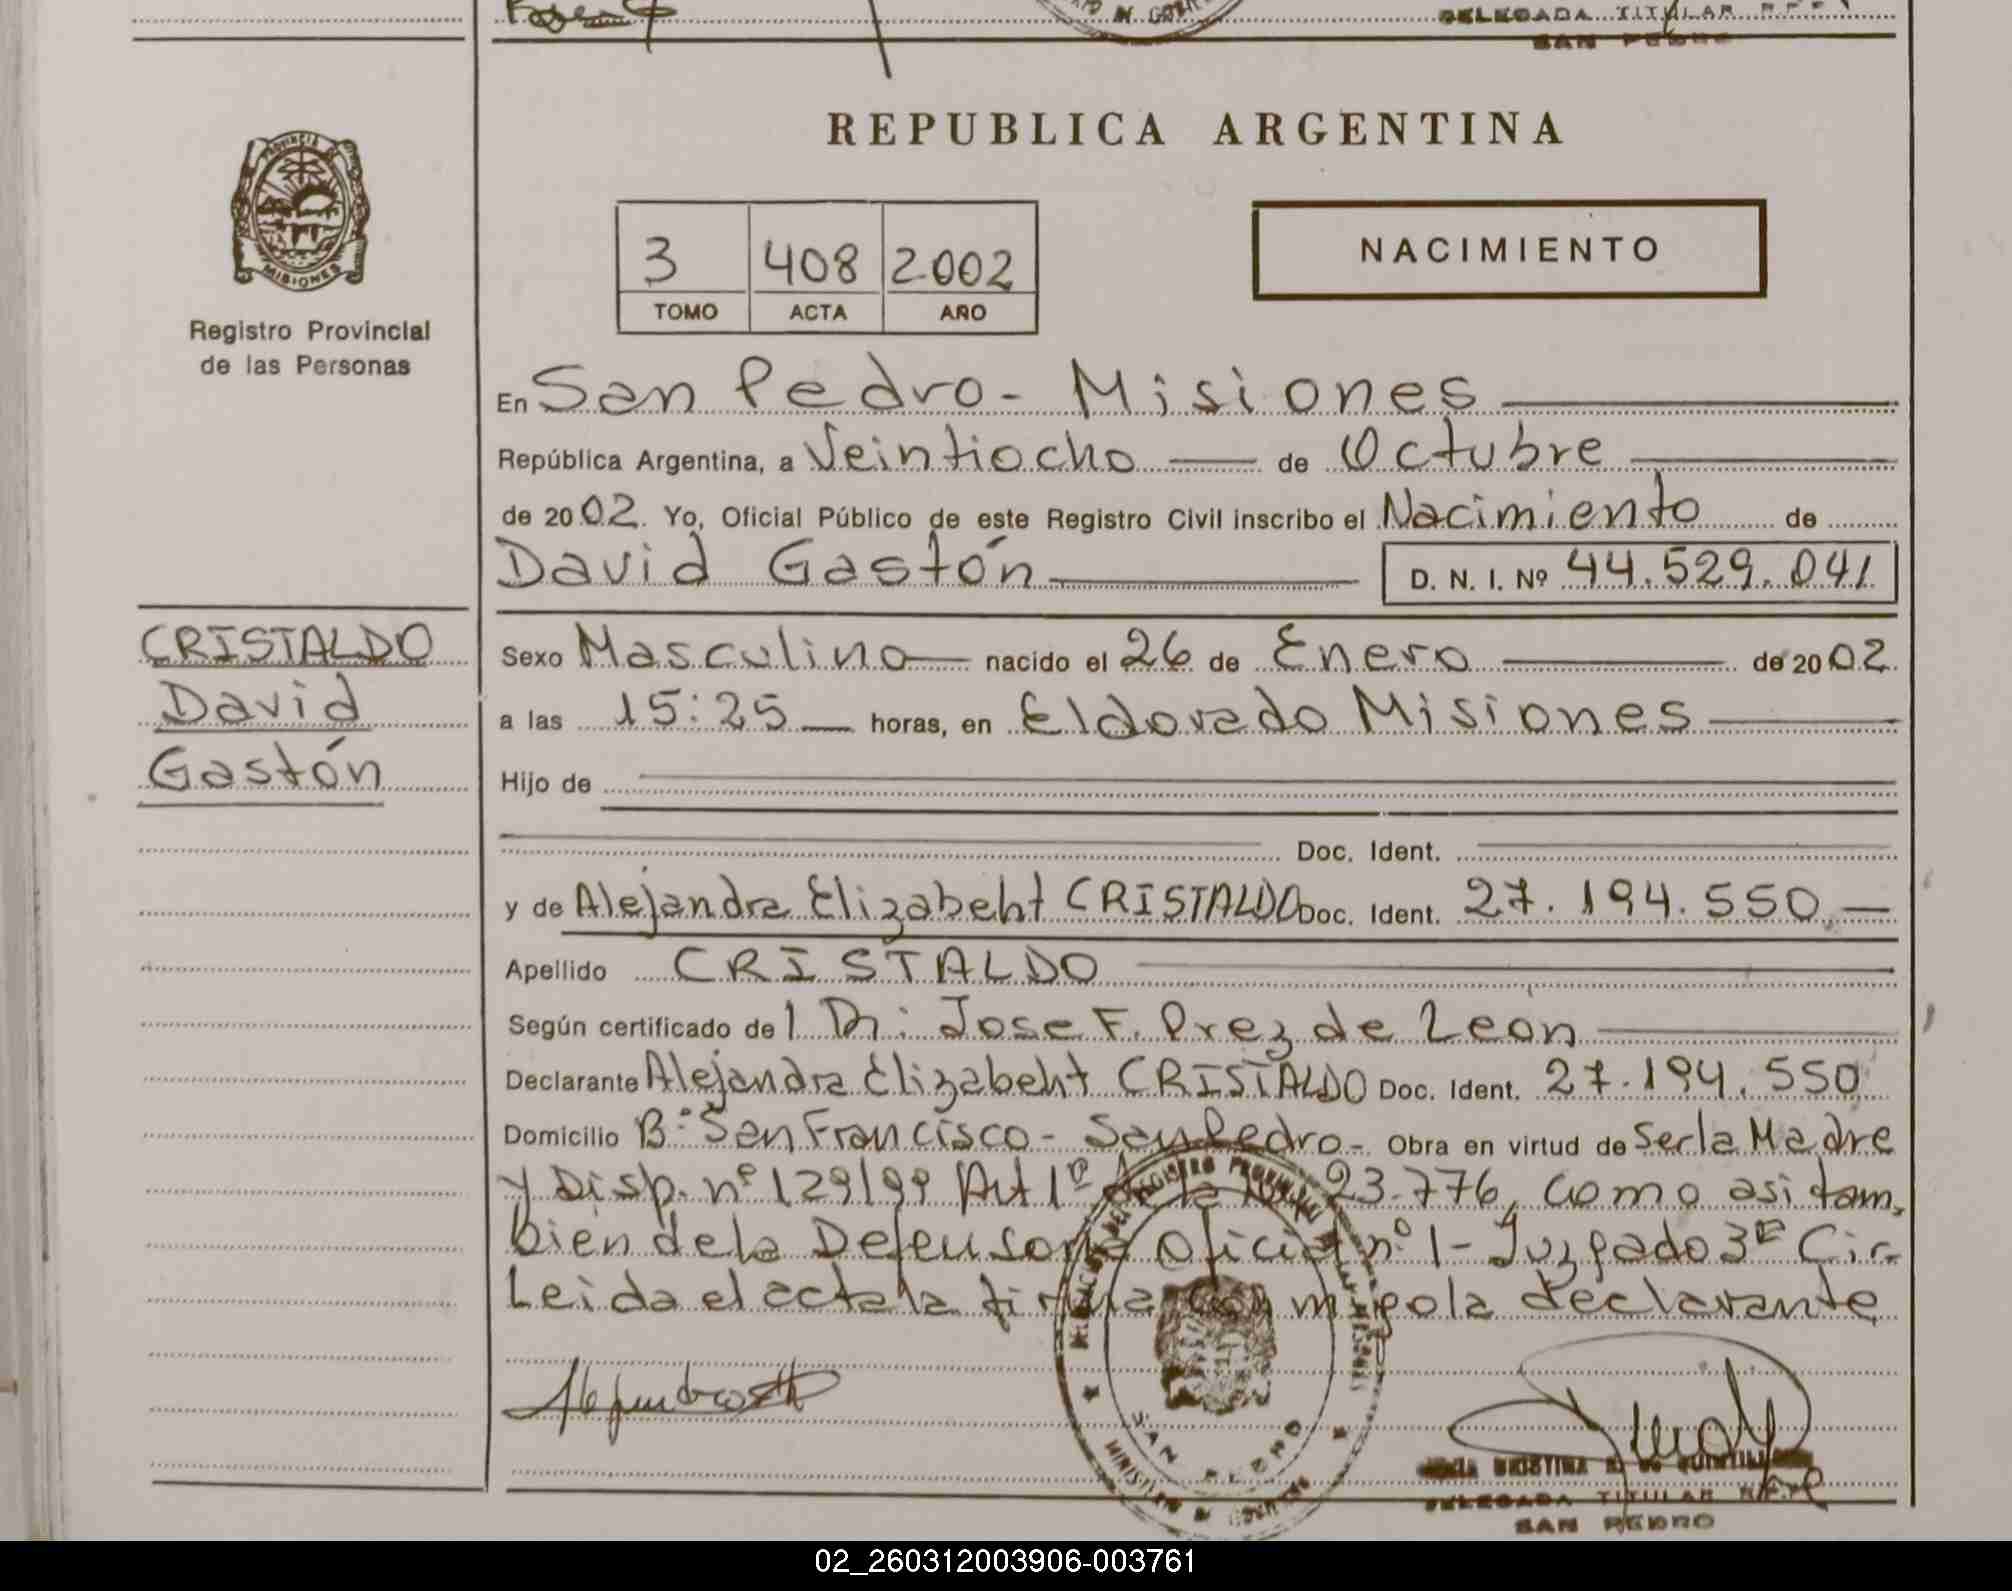 DELEGADA TITULAR
SAN PEDRO
REPUBLICA ARGENTINA
PROVINCIA DE
MISIONES
Registro Provincial
de las Personas
3 408 2002
TOMO ACTA AÑO
NACIMIENTO
En San Pedro - Misiones
República Argentina, a Veintiocho de Octubre
de 2002. Yo, Oficial Público de este Registro Civil inscribo el Nacimiento de
David Gastón D. N. I. Nº 44.529.041
CRISTALDO
David
Gastón
Sexo Masculino nacido el 26 de Enero de 2002.
a las 15:25 horas, en Eldorado Misiones
Hijo de
Doc. Ident.
y de Alejandra Elizabeht CRISTALDO Doc. Ident. 27.194.550
Apellido CRISTALDO
Según certificado del Dr: Jose F. Prez de Leon
Declarante Alejandra Elizabeht CRISTALDO Doc. Ident. 27.194.550
Domicilio Bº San Francisco - San Pedro - Obra en virtud de Ser la Madre
y Disp. nº 129/99 Art 1º de la 23.776, como asi tam,
bien de la Defensoria Oficial nº 1 - Juzgado 3ª Cir.
Leida el acta la firma con migo la declarante
SAN PEDRO
DELEGADA TITULAR
SAN PEDRO
02_260312003906-003761